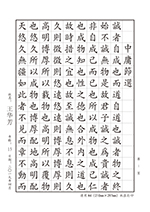 中庸節選
誠者自成也而道自道也誠者物之終
始不誠無物是故君子誠之為貴誠者
非自成己而已也所以成物也成己仁
也成物知也性之德也合外內之道也
故時措之宜也故至誠無息不息則久
久則徵徵則悠遠悠遠則博厚博厚則
高明博厚所以載物也高明所以覆物
也悠久所以成物也博厚配地高明配
天悠久無疆如此者不見而章不動而
王华芳